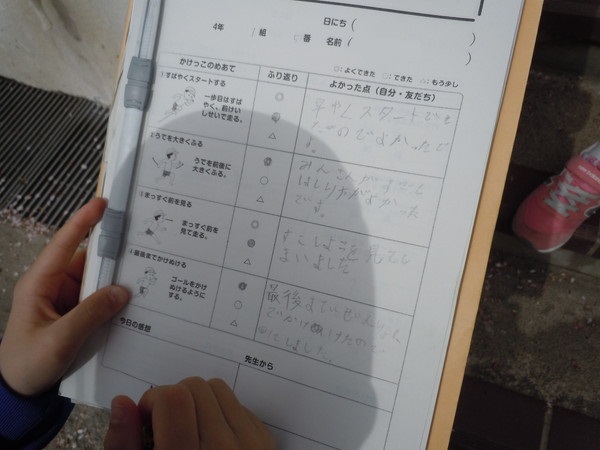 日にち( )
4年 組 番 名前( )
◎:よくできた ○:できた △:もう少し
かけっこのめあて ふり返り よかった点(自分・友だち)
①すばやくスタートする
一歩目はすば
やく、前けい
しせいで走る。
◎
○
△
早やくスタートできた
のでよかったで
す。
②うでを大きくふる
うでを前後に
大きくふる。
◎
○
△
みんな
はしり
です。
③まっすぐ前を見る
まっすぐ前を
見て走る。
◎
○
△
すこしよこを見てし
まいました
④最後までかけぬける
ゴールをかけ
ぬけるように
する。
◎
○
△
最後まで
でかけぬけたの
にしました。
今日の感想 先生から
KA